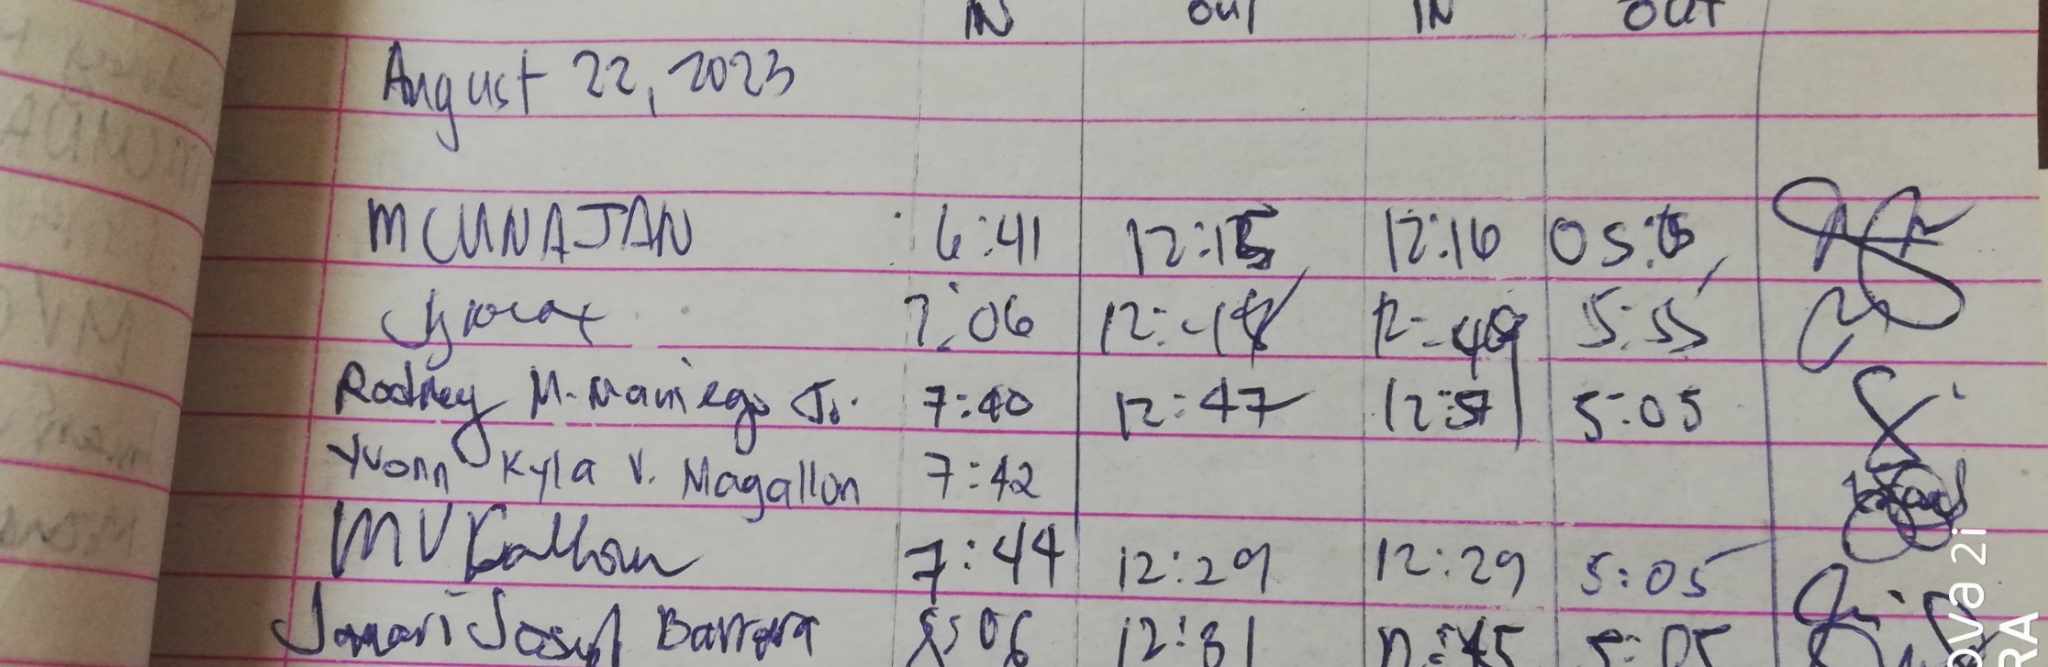 IN OUT IN OUT
August 22, 2023
MCUNAJAN 6:41 12:15 12:16 05:05
7:06 12:48 12:49 5:55
Rodney M. Maniego Jr. 7:40 12:47 12:57 5:05
Yvonn Kyla V. Magallon 7:42
MV 7:44 12:29 12:29 5:05
Barrera 8:06 12:31 12:45 5:05